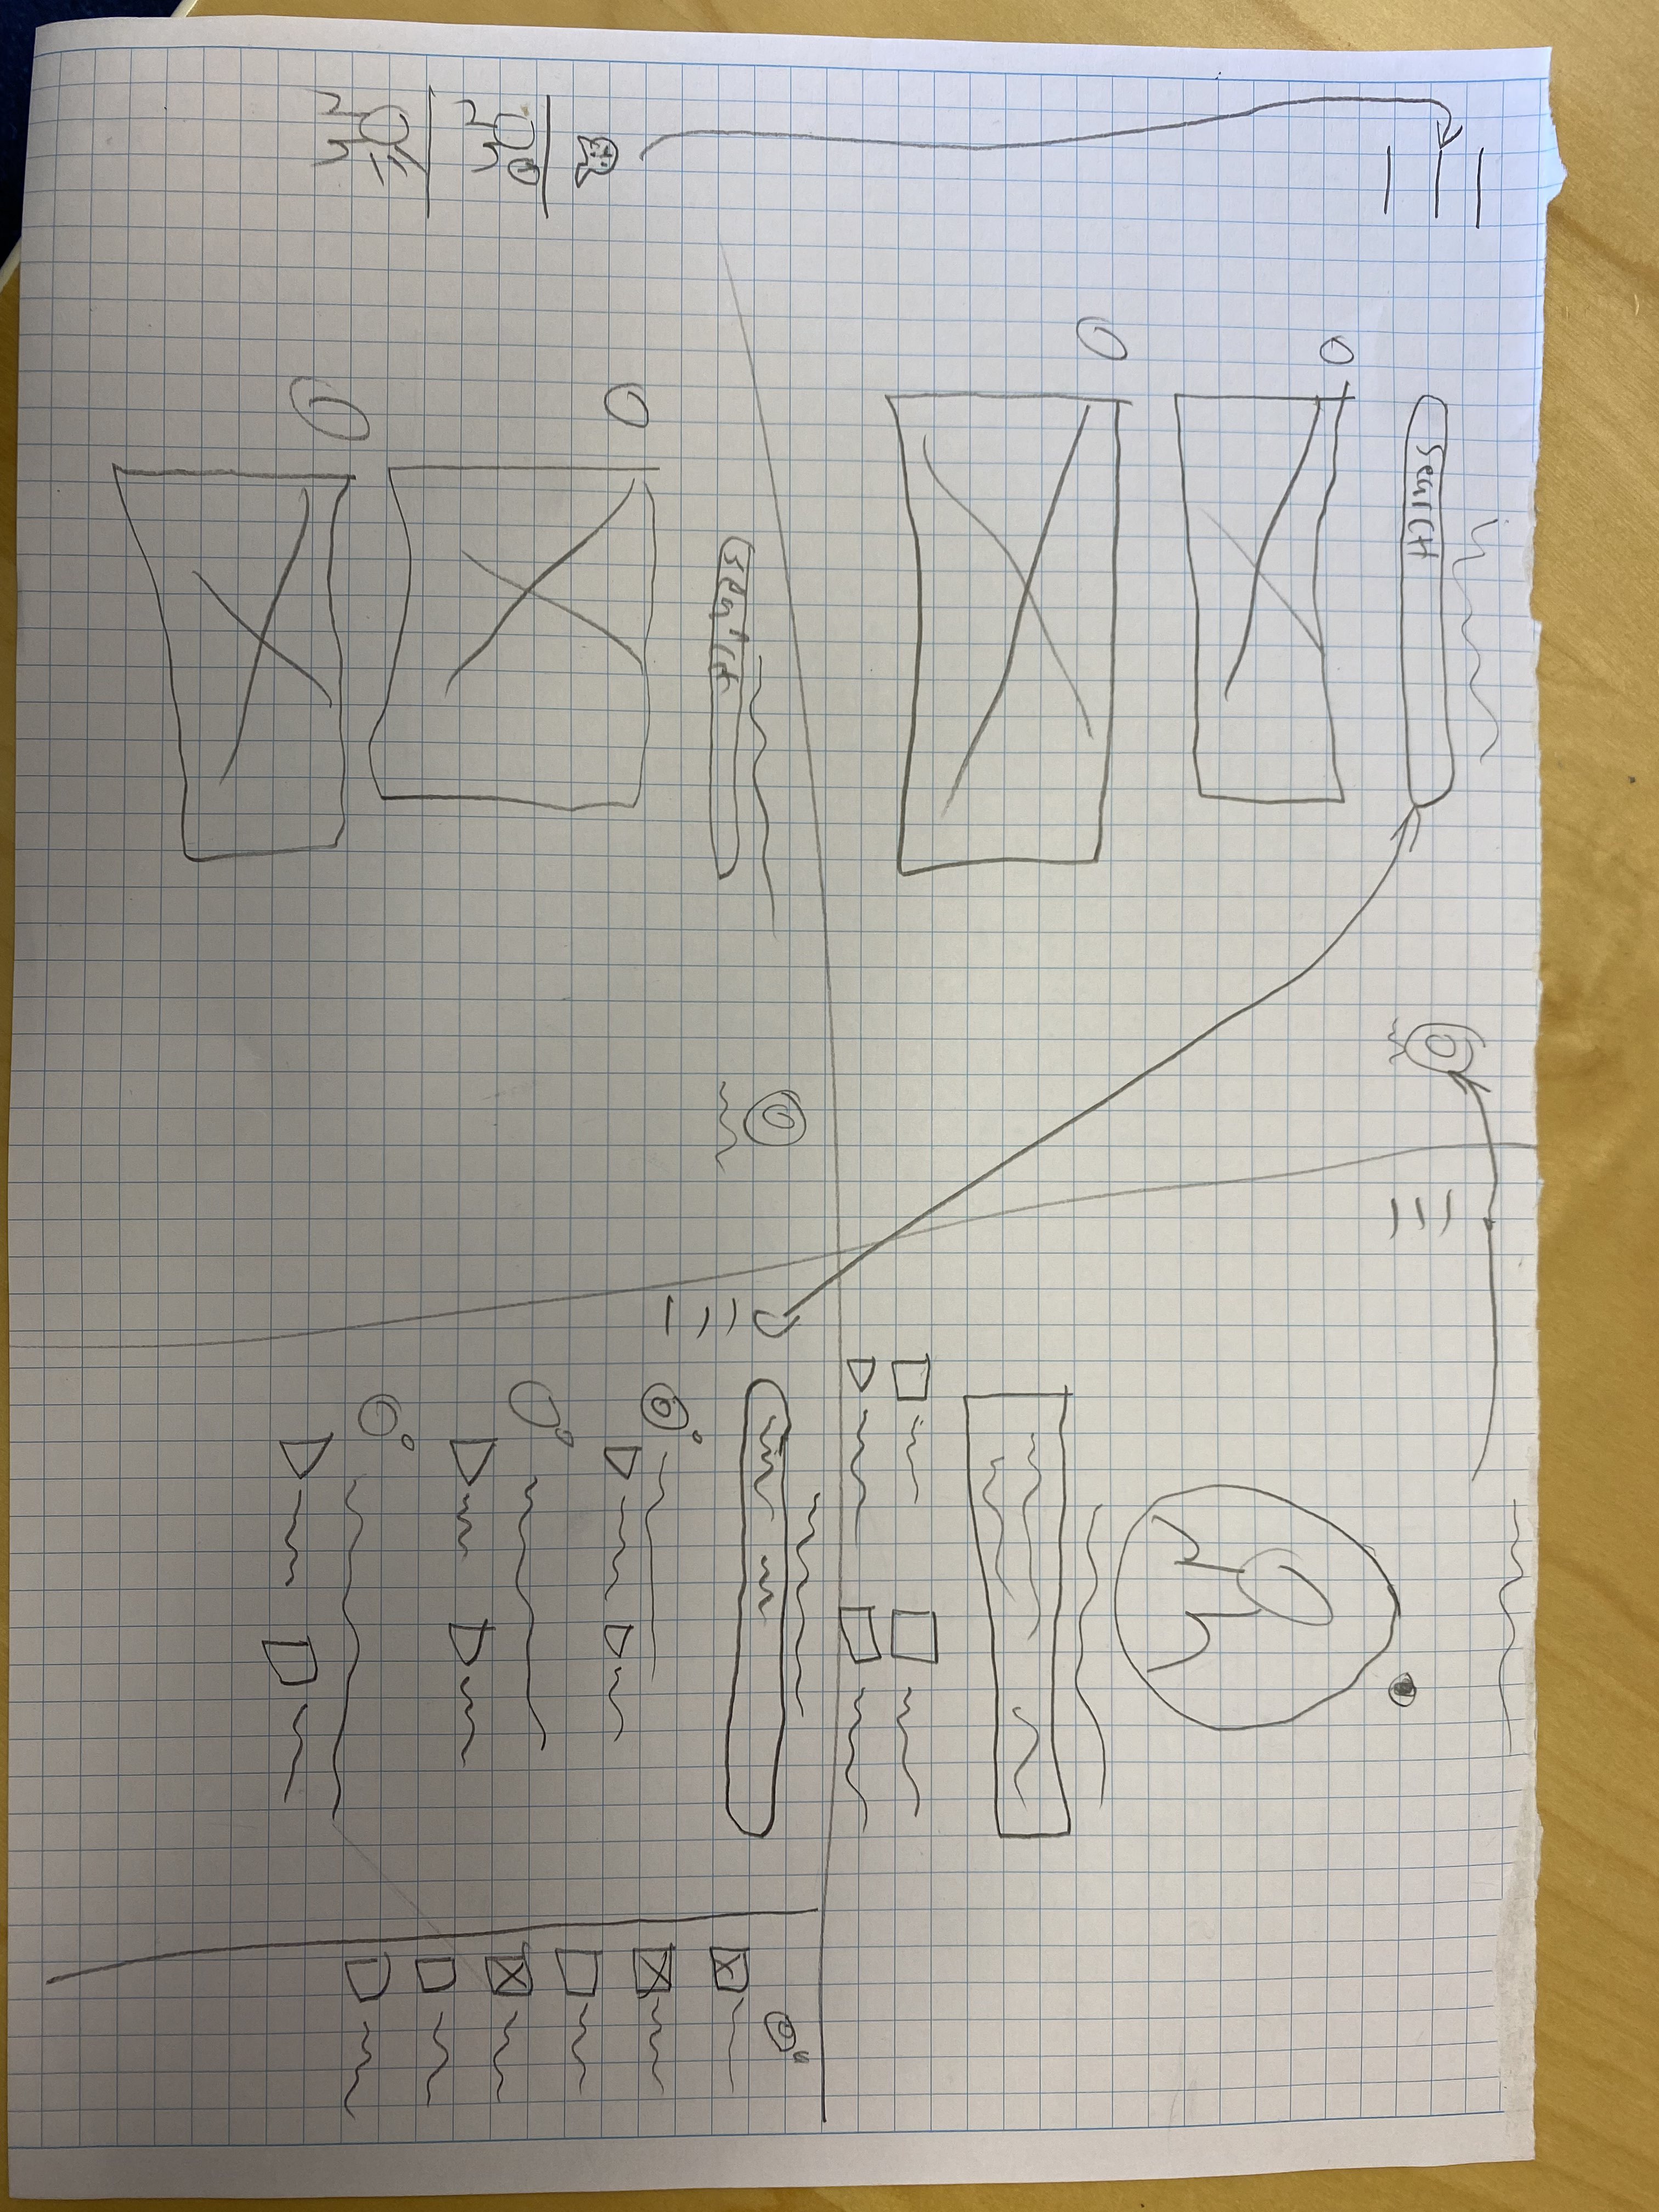 SearCH
SearcH